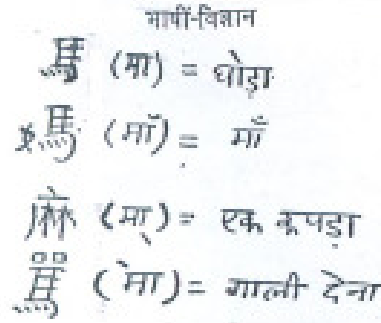 भाषा-विज्ञान
馬 (मा) = घोड़ा
媽 (माँ) = माँ
麻 (मा) = एक कपड़ा
罵 (मा) = गाली देना